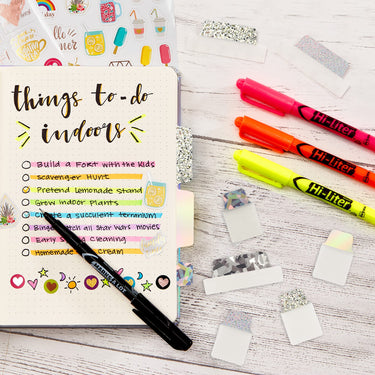 things to-do
indoors
Build a Fort with the kids
Scavenger Hunt
Pretend lemonade stand
Grow indoor plants
Create a succulent terrarium
Binge watch all Star Wars movies
Early Spring Cleaning
Homemade Cream
Hi-Liter
Hi-Liter
Hi-Liter
MARKS A LOT